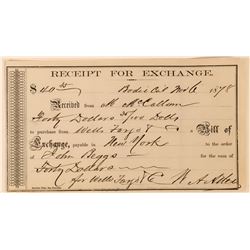 RECEIPT FOR EXCHANGE.
$40 Bodie Cal Nov 6 1878
Received from M. McCallum
Forty Dollars /100 Dolls
to purchase from Wells Fargo & Co Bill of
Exchange, payable in New York to the order
of John Beggs for the sum of
Forty Dollars
for Wells Fargo & Co